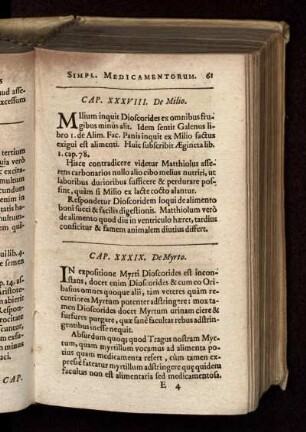 SIMPL. MEDICAMENTORUM. 61
CAP. XXXVIII. De Milio.
MIlium inquit Dioscorides ex omnibus fru-
gibus minùs alit. Idem sentit Galenus lib-
ro 1. de Alim. Fac. Panis inquit ex Milio factus
exigui est alimenti. Huic subscribit Ægineta lib.
1. cap. 78.
Hisce contradicere videtur Matthiolus asse-
rens carbonarios nullo alio cibo melius nutriri, ut
laboribus durioribus sufficere & perdurare pos-
sine, quàm si Milio ex lacte cocto alantur.
Respondetur Dioscoridem loqui de alimento
boni succi & facilis digestionis. Matthiolum verò
de alimento quod diu in ventriculo hæret, tardius
conficitur & famem animalem diutius differt.
CAP. XXXIX. De Myrto.
IN expositione Myrti Dioscorides est incon-
stans, docet enim Dioscorides & cum eo Ori-
basius omnes quoque alii, tam veteres quàm re-
centiores Myrtum potenter adstringere: mox ta-
men Dioscorides docet Myrtum urinam ciere &
furfures purgare, quæ sanè facultas rebus adstrin-
gentibus inesse nequit.
Absurdum quoq; quod Tragus nostram Myr-
tum, quam myrtillum vocamus ad alimenta po-
tius quam medicamenta refert, cùm tamen ex-
presse fateatur myrtillum adstringere quę quidem
facultas non est alimentaria sed medicamentosa.
E 4
CAP.